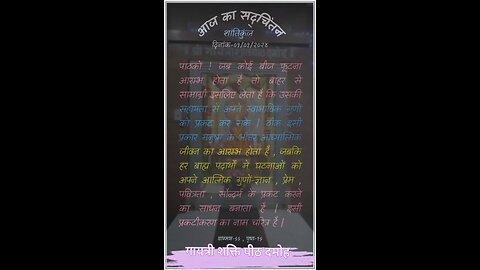 आज का सद्चिंतन
शांतिकुंज
दिनांक-०९/०९/२०२४
पाठको ! जब कोई बीज फूटना
आरम्भ होता है तो बाहर से
सामाग्री इसलिए लेता है कि उसकी
सहायता से अपने स्वाभाविक गुणो
को प्रकट कर सके । ठीक इसी
प्रकार मनुष्य के भीतर आध्यात्मिक
जीवन का आरम्भ होता है , जबकि
हर बाह्य पदार्थो में घटनाओं को
अपने आत्मिक गुणो-ज्ञान , प्रेम ,
पवित्रता , सौन्दर्य के प्रकट करने
का साधन बनाता है । इसी
प्रकटीकरण का नाम चरित्र है ।
गायत्री शक्ति पीठ दमोह